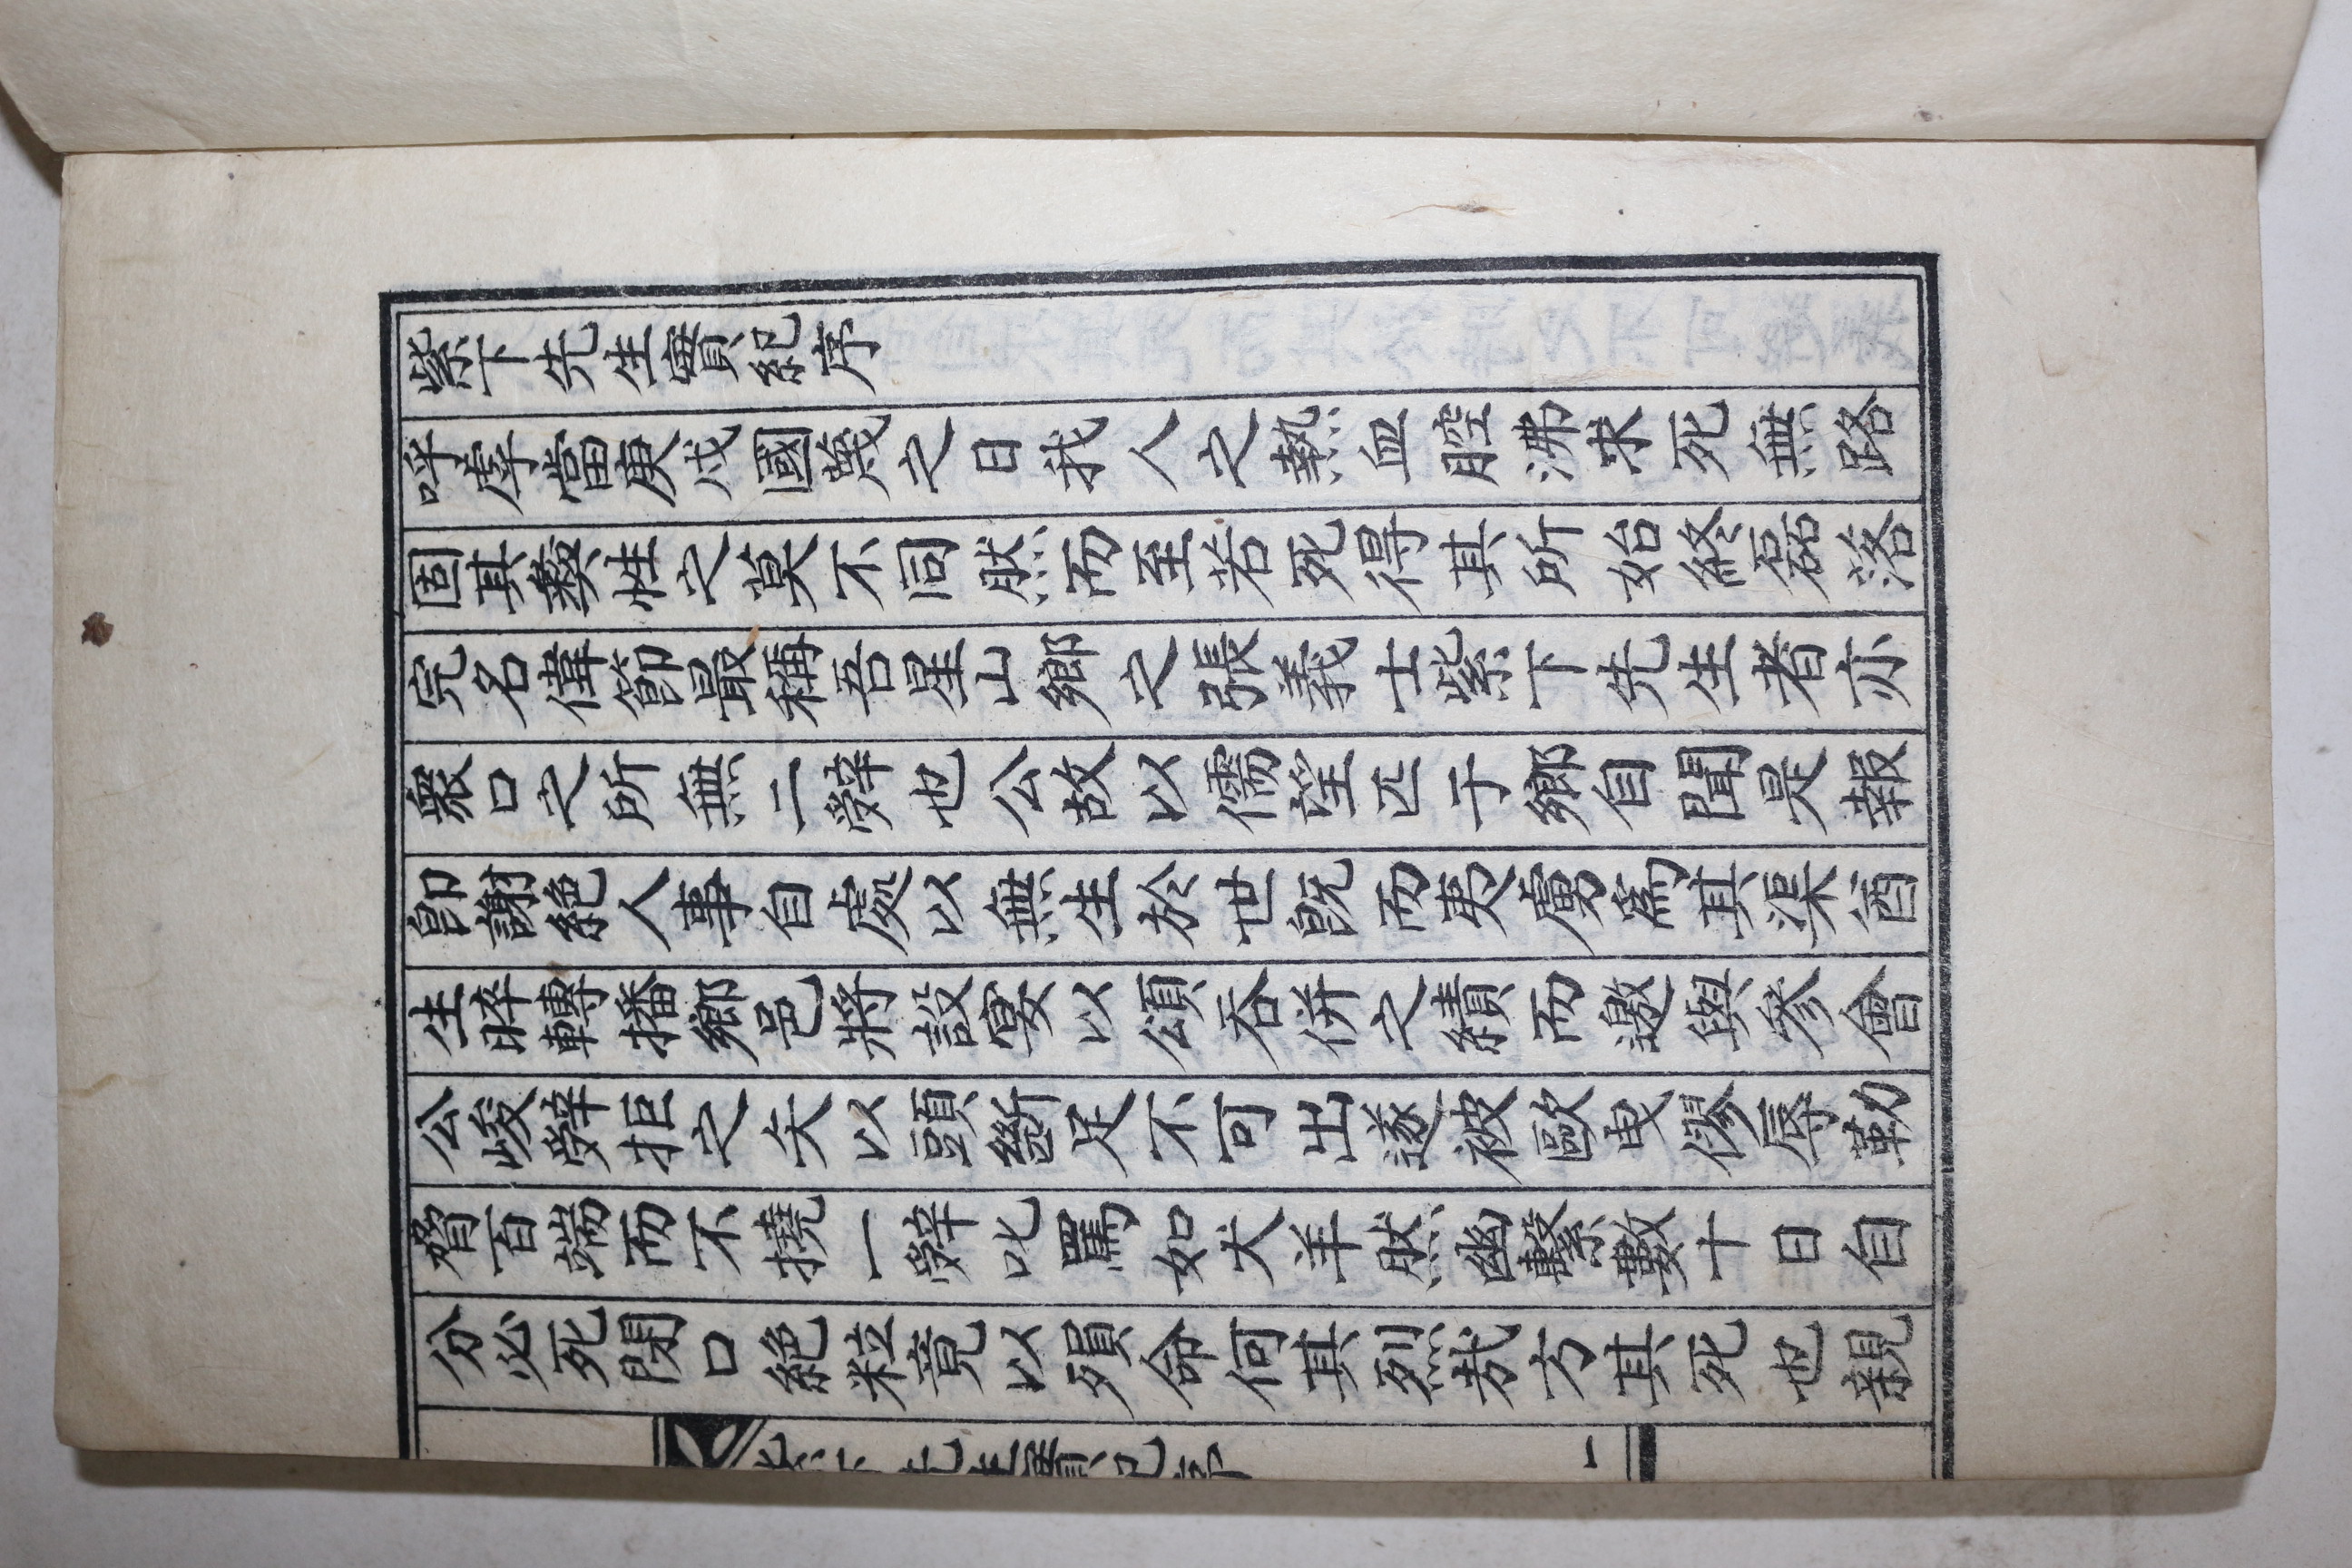 紫下先生實紀序
呼虖當庚戌國蔑之日我人之熱血腔沸求死無路
固其彜性之莫不同然而至若死得其所始終磊落
完名偉節最稱吾星山鄕之張義士紫下先生者亦
衆口之所無二辭也公故以儒望匹于鄕自聞是報
卽謝絶人事自處以無生於世旣而夷虜爲其渠酋
生晬轉播鄕邑將設宴以頌呑併之績而邀與參會
公峻辭拒之矢以頭斷足不可出遂被歐曳僇辱勒
脅百端而不撓一辭叱罵如犬羊然幽繫數十日自
分必死閉口絶粒竟以殞命何其烈哉方其死也親
紫下先生實紀序 一